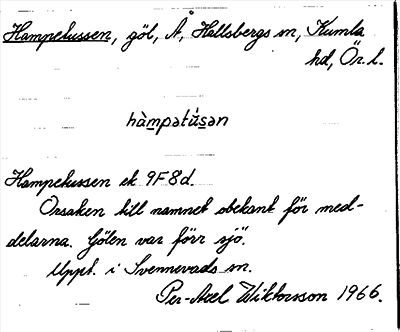 Hampetussen, göl, Å, Hallsbergs sn, Kumla
hd, Ör. l.
hàmpətú̀sən
Hampetussen ek 9F8d.
Orsaken till namnet obekant för med-
delarna. Gölen var förr sjö.
Uppt. i Svennevads sn.
Per-Axel Wiktorsson 1966.